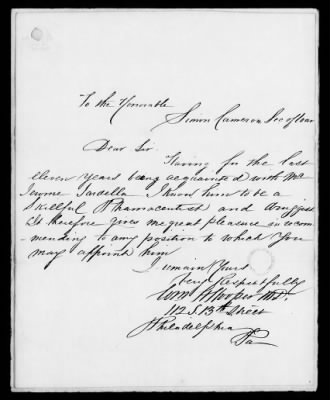 To the Honorable
Simon Cameron Sec of War
Dear Sir.
Having for the last
eleven years being acquainted with Mr
Sardella I know him to be a
Skillful Pharmaceutist and Druggist
It therefore gives me great pleasure in recom
mending to any position to which You
may appoint him
I remain Yours
Very Respectfully
Wm Hooper MD.
112 S. 13th Street
Philadelphia
Pa